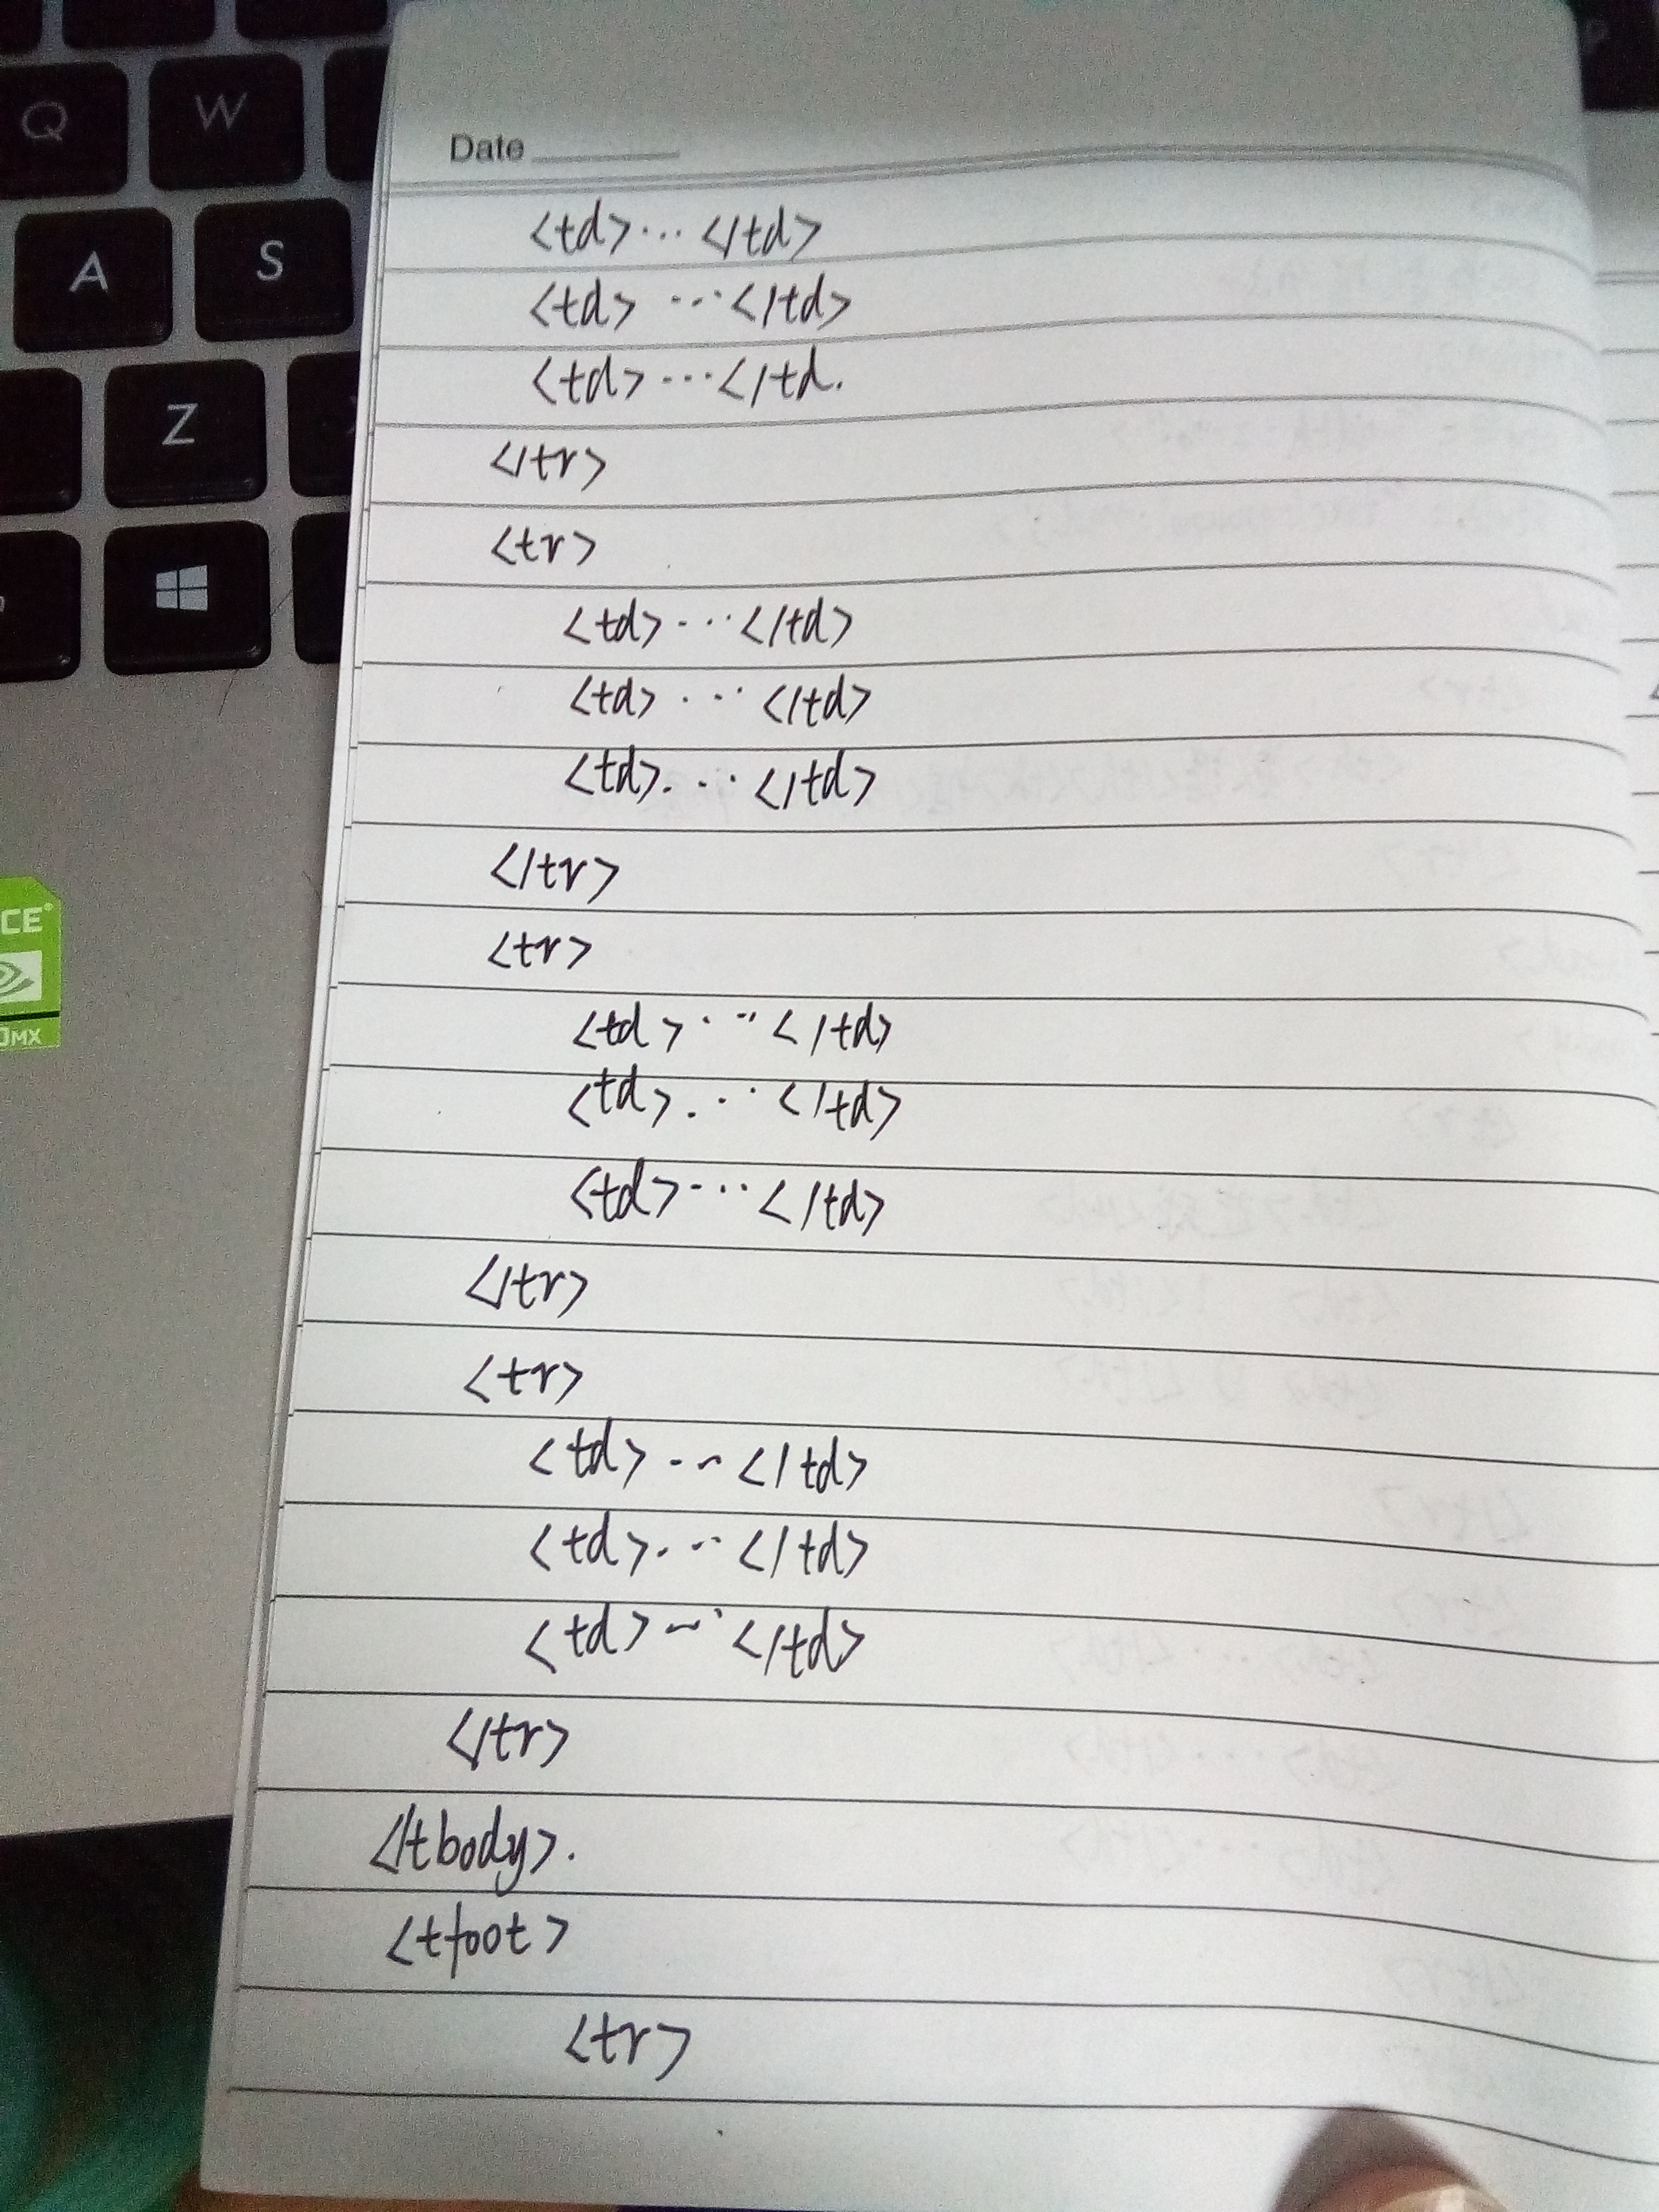 Q W
A S
Z
CE
MX
Date
<td>...</td>
<td> ...</td>
<td>...</td.
</tr>
<tr>
<td>...</td>
<td>...</td>
<td>...</td>
</tr>
<tr>
<td>...</td>
<td>...</td>
<td>...</td>
</tr>
<tr>
<td>...</td>
<td>...</td>
<td>...</td>
</tr>
</tbody>.
<tfoot>
<tr>